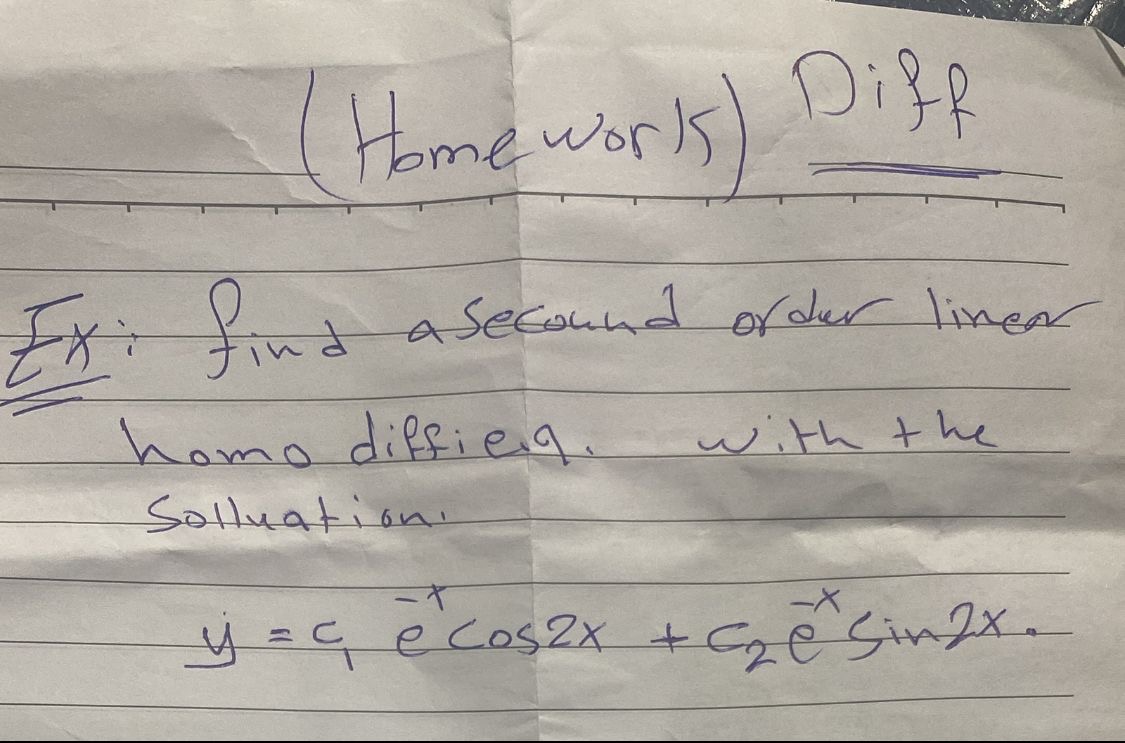 (Homework) Diff
Ex: find a secound order linear
homo diffieq. with the
Solluation.
y = c₁ e⁻ˣ cos2x + c₂ e⁻ˣ sin2x.